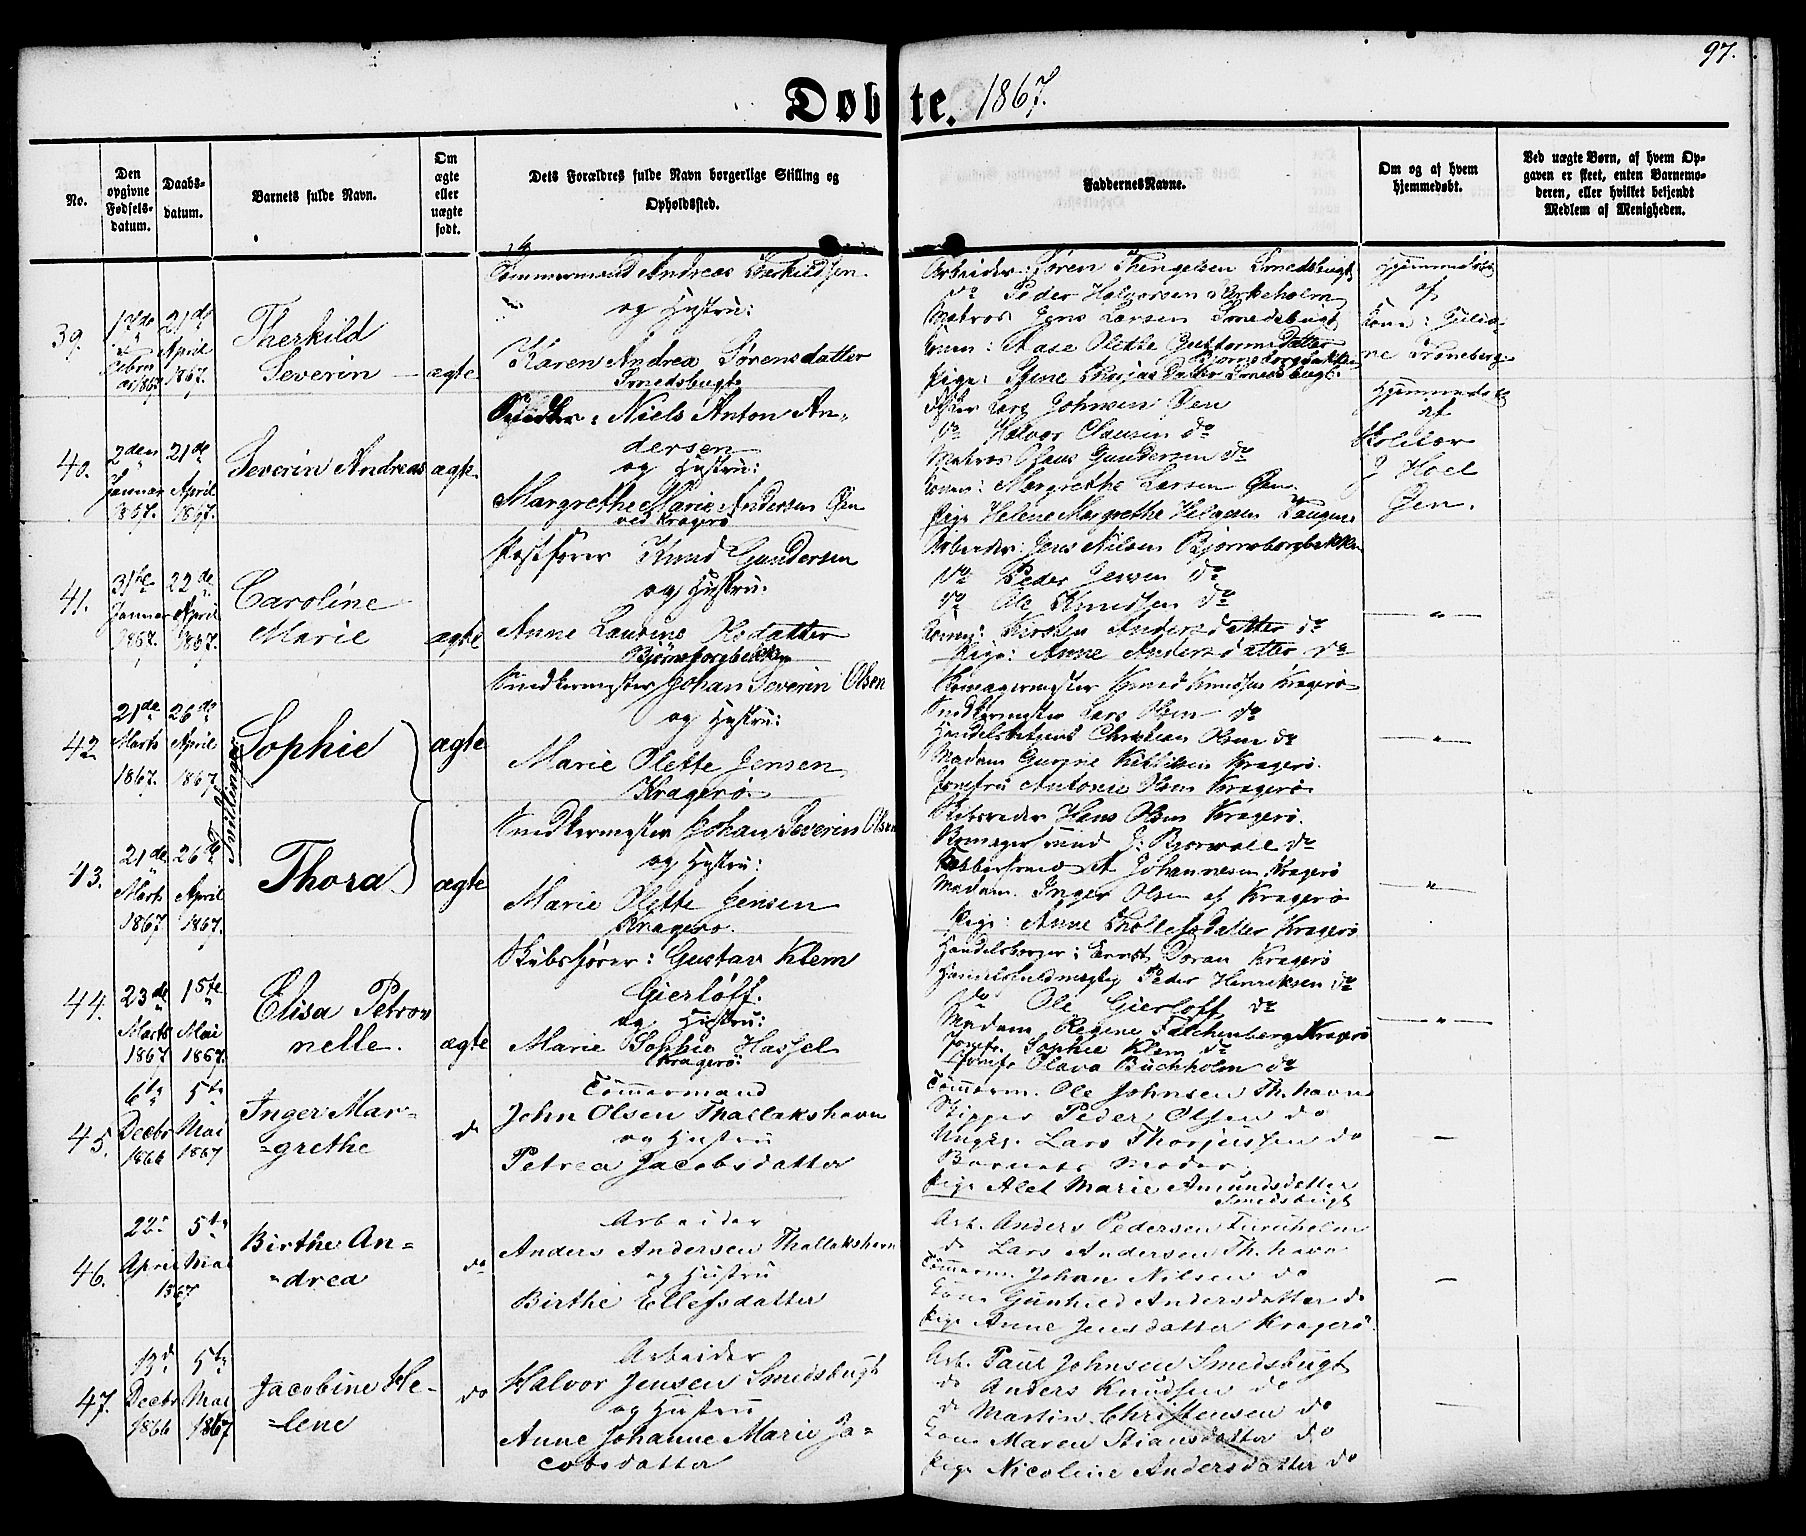 97.
Döbte. 1867.
No.
Den opgivne Fødsels-datum.
Daabs-datum.
Barnets fulde Navn.
Om ægte eller uægte født.
Dets Forældres fulde Navn borgerlige Stilling og Opholdssted.
Faddernes Navne.
Om og af hvem hjemmedøbt.
Ved uægte Børn, af hvem Opgaven er skeet, enten Barnemoderen, eller hvilket betjendt Medlem af Menigheden.
39. 17de Febru ar 1867 21de April 1867. Therkild Severin ægte
Tømmermand Andreas Therkildsen
og Hustru:
Karen Andrea Sørensdatter
Smedsbugt
Arbeider: Søren Thengelsen Smedsbugt
do Peder Halvorsen Birkeholm
Matros Jens Larsen Smedsbugt
Konen: Aase Olethe Guttormsdatter
Bjørnsborgbakken
Pige: Stine Smedsbugt
Hjemmedøbt
af
Kone: Julia-
ne Troneberg
40. 2den Januar 1867. 21de April 1867. Severin Andreas ægte
Snedker: Niels Anton An-
dersen
og Hustru:
Margrethe Marie Andersen Øen
ved Kragerø
Lars Johnsen Øen
do Halvor Clausen do
Matros Olaus Gundersen do
Konen: Margrethe Larsen Øen.
Pige Helene Margrethe Helgesen Tangen
Hjemmedøbt
af
J Hoel
Øen.
41. 31te Januar 1867. 22de April 1867. Caroline Marie ægte
Postfører Knud Gundersen
og Hustru:
Anne Laurine Olsdatter
Bjørnsborgbakken
Arbeider: Jens Nilsen Bjørnsborgbakken
do Peder Jensen do
do Ole Knudsen do
Konen: Kirsten Andersdatter do
Pige: Anne Andersdatter do
— " —
42. 21de Marts 1867. 26de April 1867 Tvillinger Sophie ægte
Snedkermester Johan Severin Olsen
og Hustru:
Marie Olette Jensen
Kragerø
Knud Knudsen Kragerø
Snedkermester Lars Olsen do
Handelsbetjent Christian Olsen do
Madam Gurine Kittilsen Kragerø.
Jomfru Antonie Olsen Kragerø
— " —
43. 21de Marts 1867 26de April 1867. Thora ægte
Snedkermester Johan Severin Olsen
og Hustru:
Marie Olette Jensen
Kragerø.
Skibsreder Hans Olsen Kragerø.
J: Bjorvall do
A Johannesen Kragerø
Madam. Inger Olsen af Kragerø
Pige: Anne Tollefsdatter Kragerø
— " —
44. 23de Marts 1867 1ste Mai 1867. Elisa Petron nelle. ægte
Skibsfører: Gustav Klem
Gierløff.
og Hustru:
Marie Sophie Hassel
Kragerø
Handelsborger: Ernst Doran Kragerø
Handelsfuldmægtig Peder Henriksen do
do Ole Gierløff do
Madam Regine Falchenberg Kragerø
Jomfr. Sophie Klem do
Jomf. Olava Buchholm do
— " —
45. 6te Decbr 1866 5te Mai 1867 Inger Mar-
-grethe do
Tömmermand
John Olsen Thallakshavn
og Hustru
Petrea Jacobsdatter
Tömmerm. Ole Johnsen Th.havn
Skipper Peder Olsen do
Ungk. Lars Thorjussen do
Barnets Moder,
Pige Alet Marie Amundsdatter
Smedsbugt
—
46. 22de April 1867 5te Mai Birthe An-
-drea do
Arbeider
Anders Andersen Thallakshavn
og Hustru
Birthe Ellefsdatter
Arb. Anders Pedersen Furuholm
do Lars Andersen Th.havn
Tömmerm. Johan Nilsen do
Kone Gunhild Andersdatter do
Pige Anne Jensdatter Kragerø.
—
47. 13de Decbr 1866 5te Mai 1867 Jacobine He-
-lene do
Arbeider
Halvor Jensen Smedsbugt
og Hustru
Anne Johanne Marie Ja-
cobsdatter
Arb. Paul Johnsen Smedsbugt
do Anders Knudsen do
do Martin Christensen do
Kone Maren Stiansdatter do
Pige Nicoline Andersdatter do
—